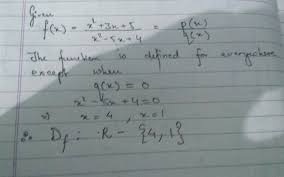 Given
f(x) = x² + 3x + 5 / x² - 5x + 4 = p(x) / q(x)
The function is defined for everywhere
except when
q(x) = 0
x² - 5x + 4 = 0
⇒ x = 4, x = 1
∴ Df : R - {4, 1}